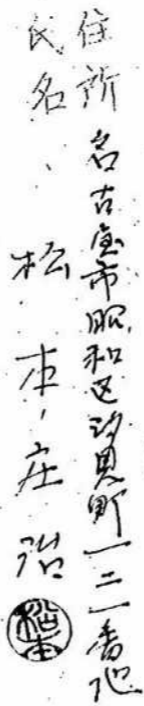 住所 名古屋市昭和区汐見町一二一番地
氏名 松本庄治
松本